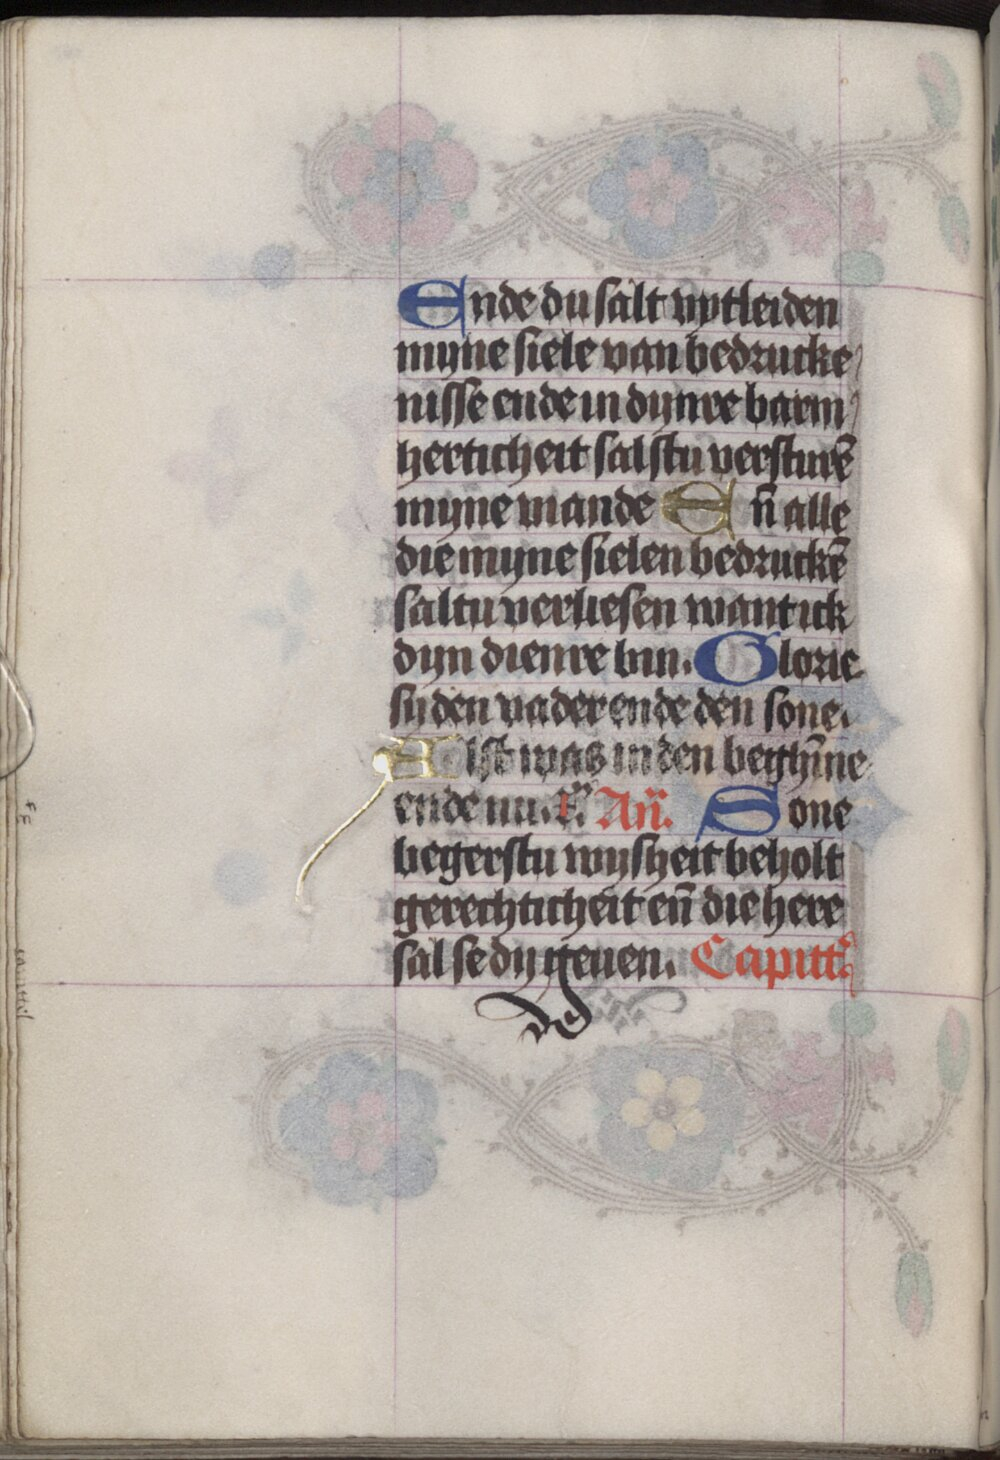 Ende du salt vytleiden
myne siele van bedrucke
nisse ende in dynre barm
herticheit salstu versturē
myne viande Eñ alle
die myne sielen bedruckē
saltu verliesen want ick
dyn dienre bin. Glorie
sy den vader ende den sone.
Alst was in den beghȳne
ende nu. Añ. Sone
begerstu wysheit beholt
gerechticheit eñ die here
sal se dy geuen. Capittꝭ